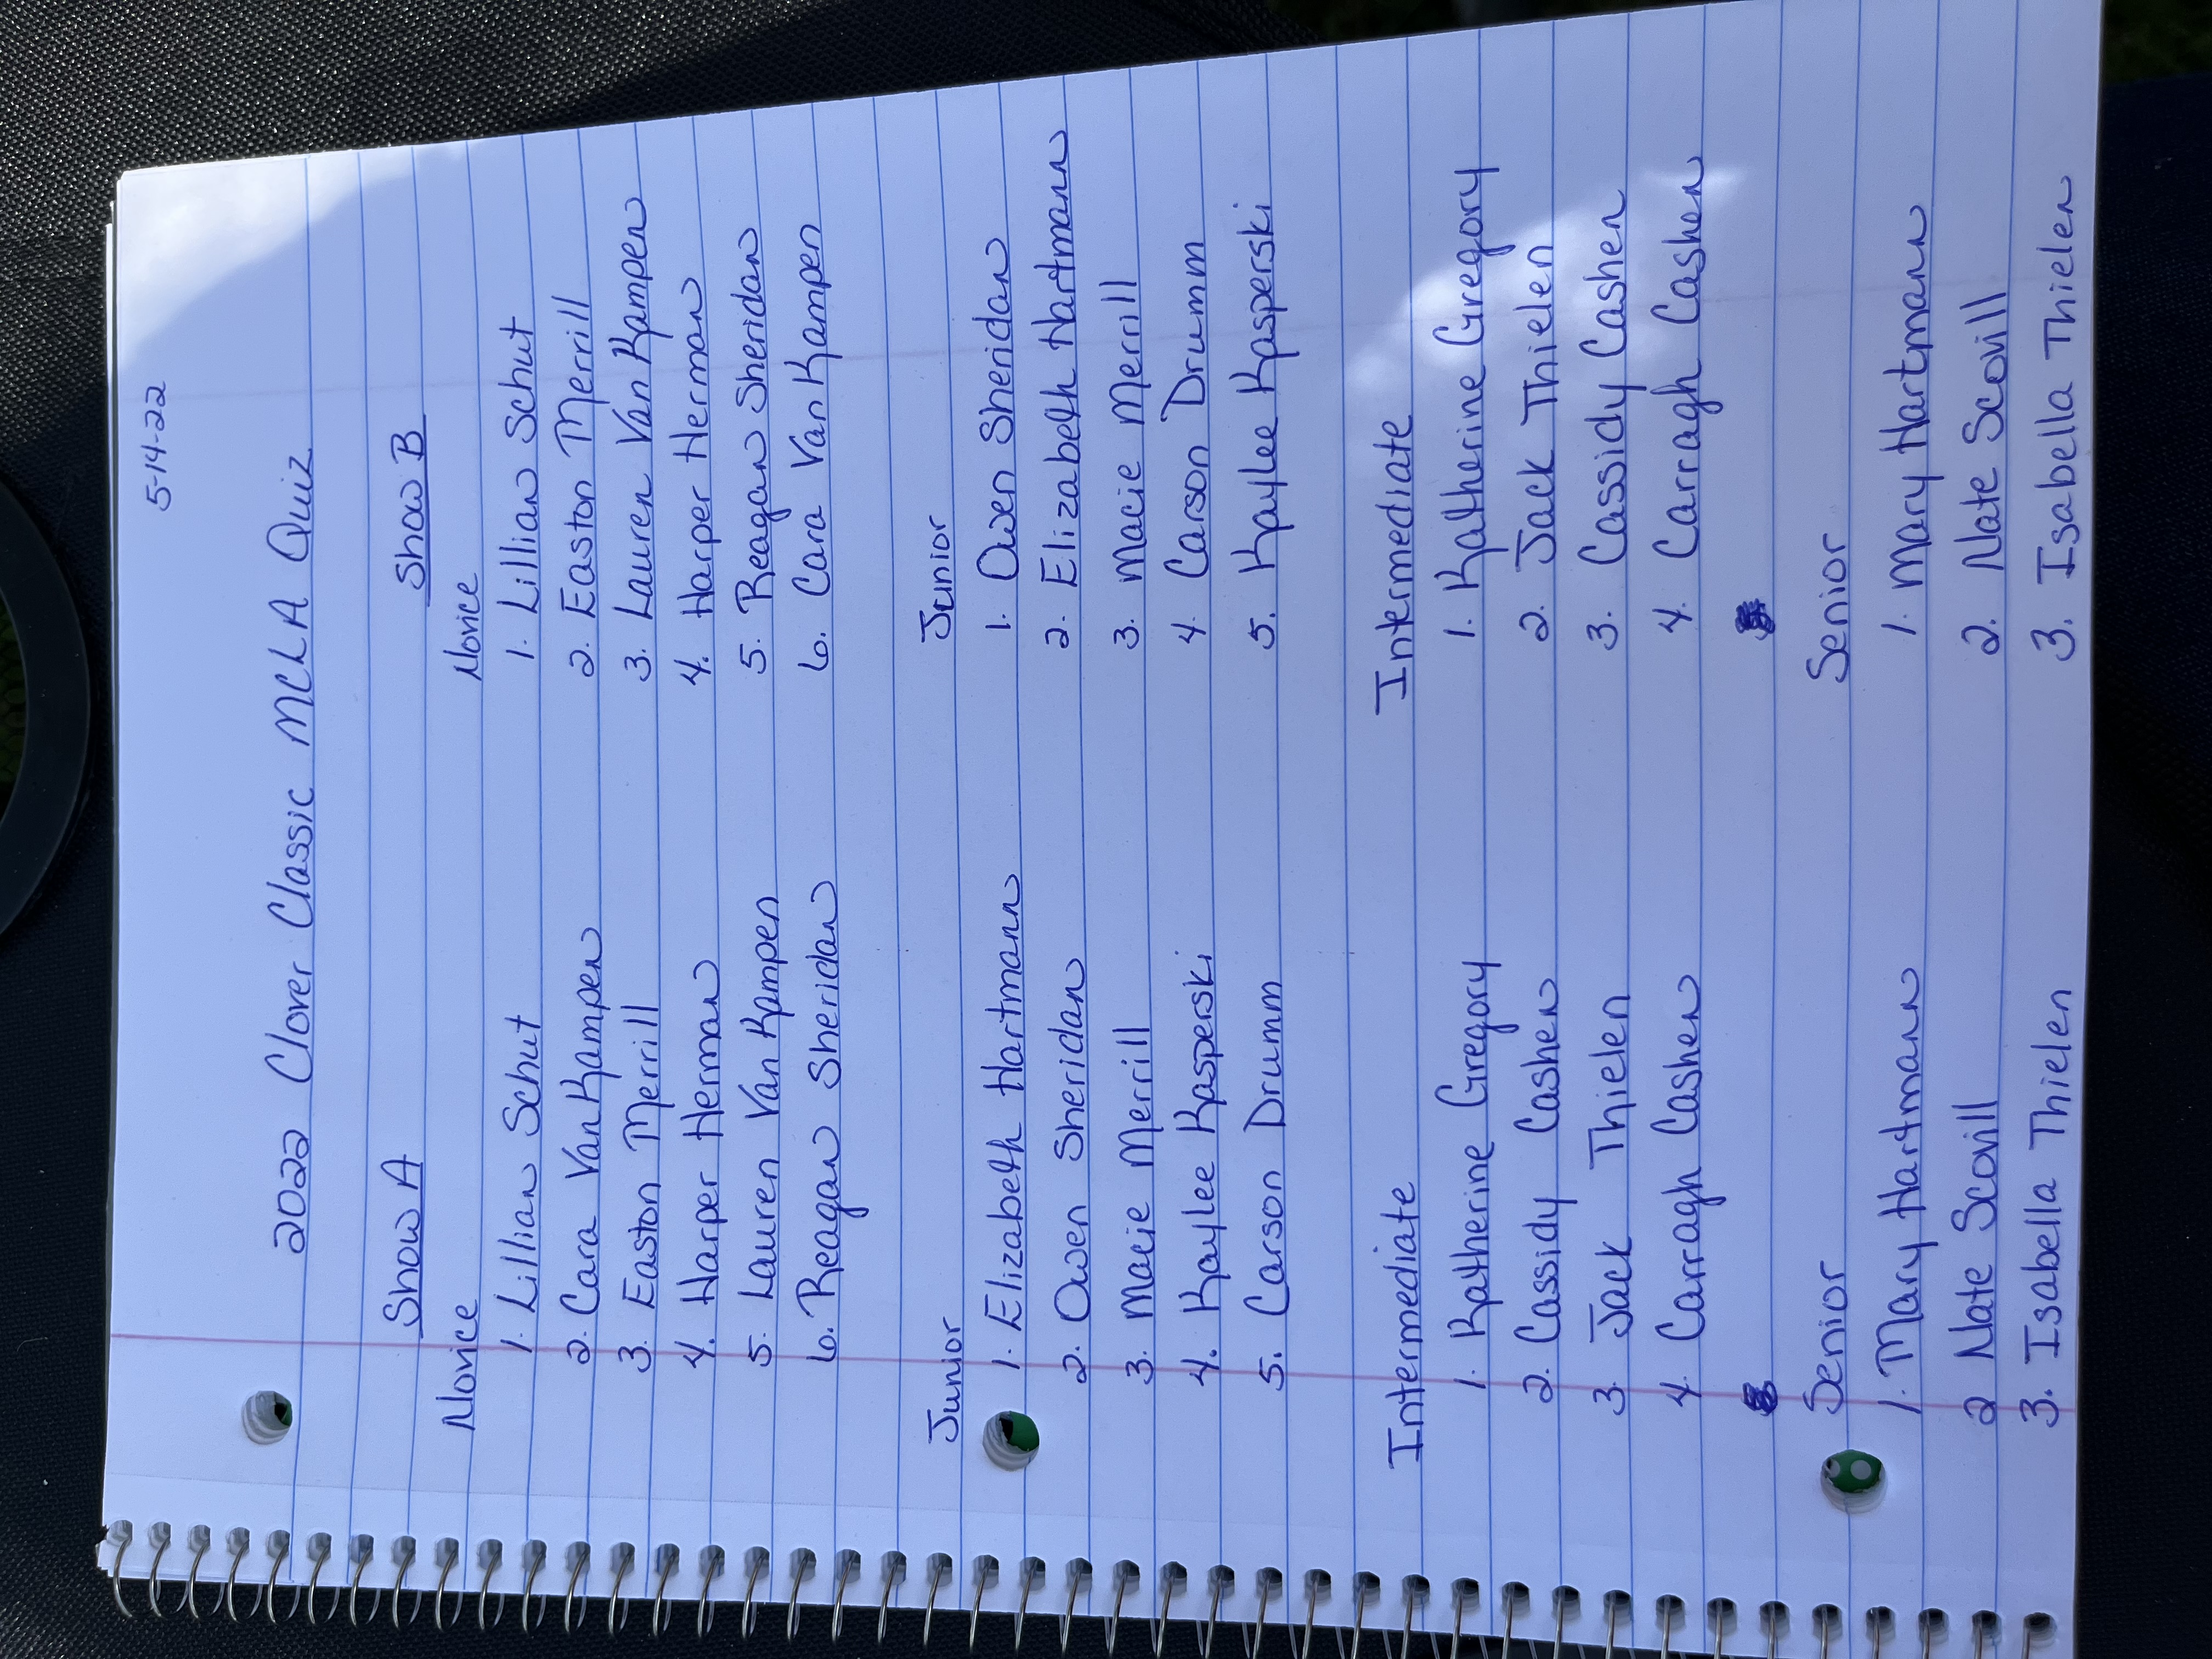 5-14-22
2022 Clover Classic MCLA Quiz
Show A
Novice
1. Lillian Schut
2. Cara Van Kampen
3. Easton Merrill
4. Harper Herman
5. Lauren Van Kampen
6. Reagan Sheridan
Junior
1. Elizabeth Hartmann
2. Owen Sheridan
3. Macie Merrill
4. Kaylee Kasperski
5. Carson Drumm
Intermediate
1. Katherine Gregory
2. Cassidy Cashen
3. Jack Thielen
4. Carragh Cashen
Senior
1. Mary Hartmann
2 Nate Scovill
3. Isabella Thielen
Show B
Novice
1. Lillian Schut
2. Easton Merrill
3. Lauren Van Kampen
4. Harper Herman
5. Reagan Sheridan
6. Cara Van Kampen
Junior
1. Owen Sheridan
2. Elizabeth Hartmann
3. Macie Merrill
4. Carson Drumm
5. Kaylee Kasperski
Intermediate
1. Katherine Gregory
2. Jack Thielen
3. Cassidy Cashen
4. Carragh Cashen
Senior
1. Mary Hartmann
2. Nate Scovill
3. Isabella Thielen